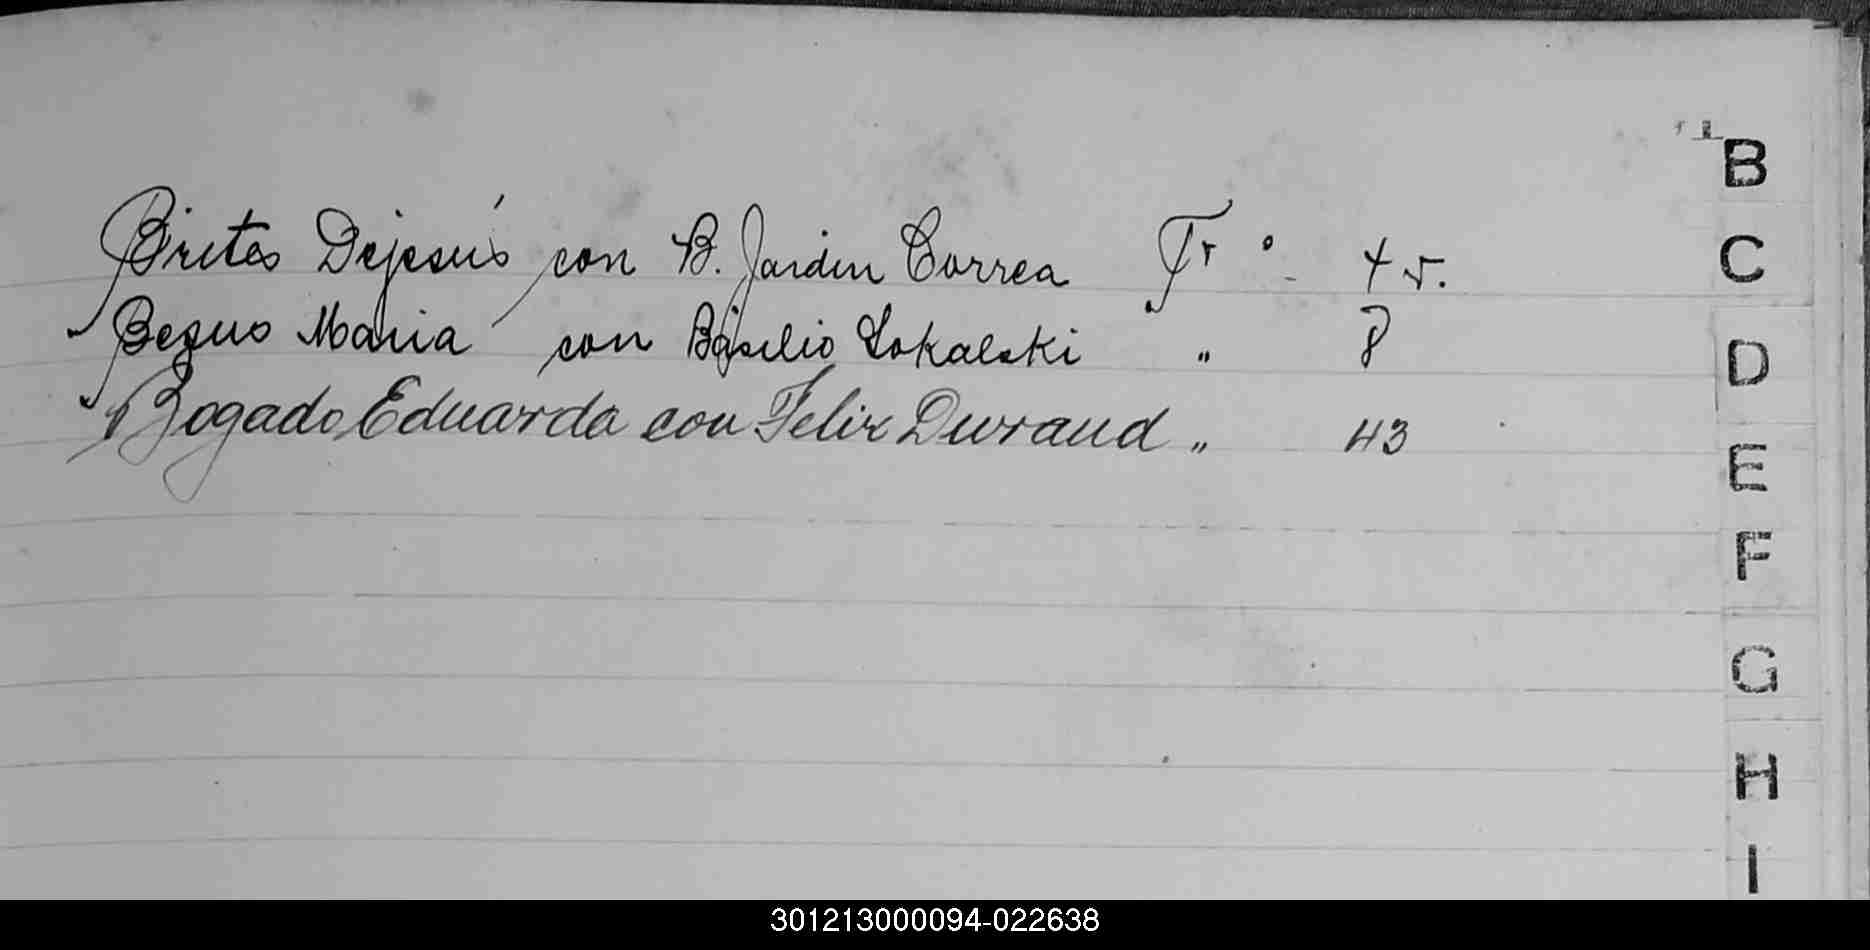 Britos Dejesús con B. Jardin Correa Fº 45.
Maria con Basilio Sokalski " 8
Bogado Eduarda con Felix Durand " 43
B
C
D
E
F
G
H
I
301213000094-022638